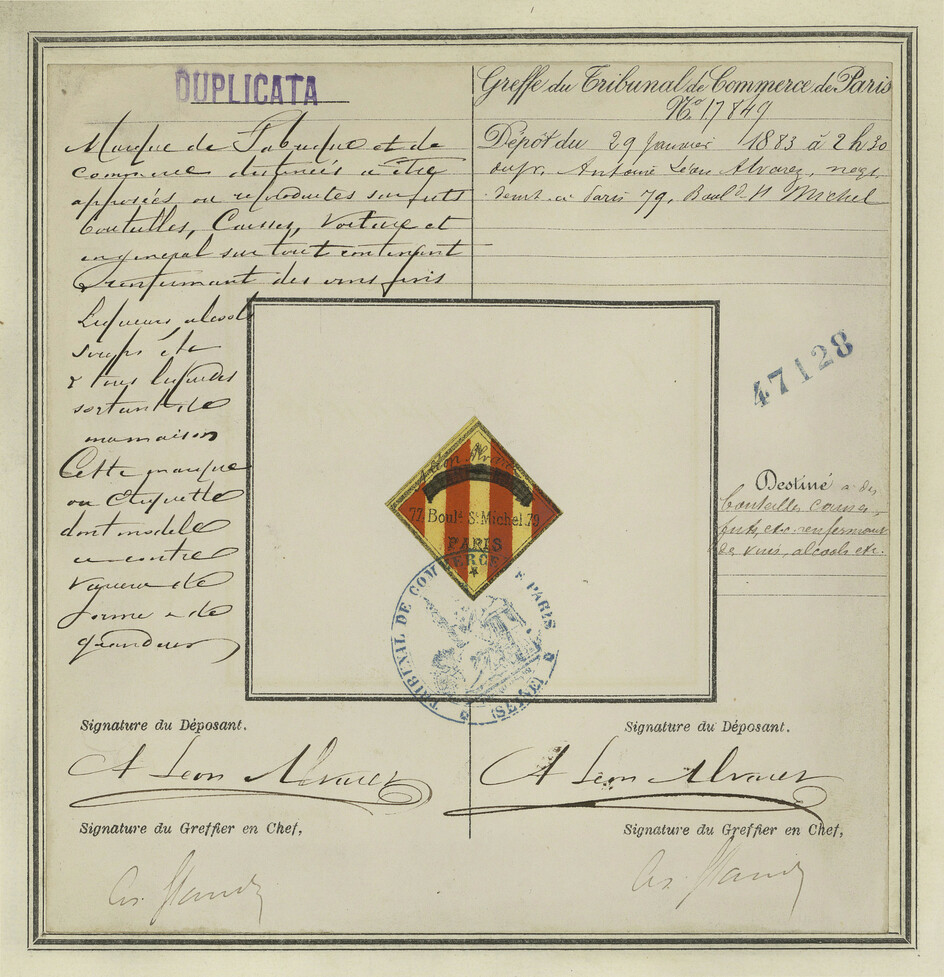 DUPLICATA
Marque de Fabrique et de
commerce destinées a être
apposées ou reproduites sur futs
bouteilles, Caisses, Voiture et
en general sur tout contenant
renfermant des vins fins
Liqueurs alcools
sirops etc
& tous liquides
sortant de
ma maison
Cette marque
ou Etiquette
dont modele
ci contre
variera de
forme & de
grandeur
Greffe du Tribunal de Commerce de Paris
No. 17849
Dépôt du 29 Janvier 1883 à 2 h 30
Antoine Léon Alvarez, negt
demt. a Paris 79, Bould St Michel
47128
Léon Alvarez
77. Bould. St Michel. 79
PARIS
TRIBUNAL DE COMMERCE DE PARIS
(SEINE)
Destiné a des
bouteilles caisses,
futs, etc. renfermant
de vins, alcools etc.
Signature du Déposant.
A Léon Alvarez
Signature du Greffier en Chef,
Signature du Déposant.
A Léon Alvarez
Signature du Greffier en Chef,